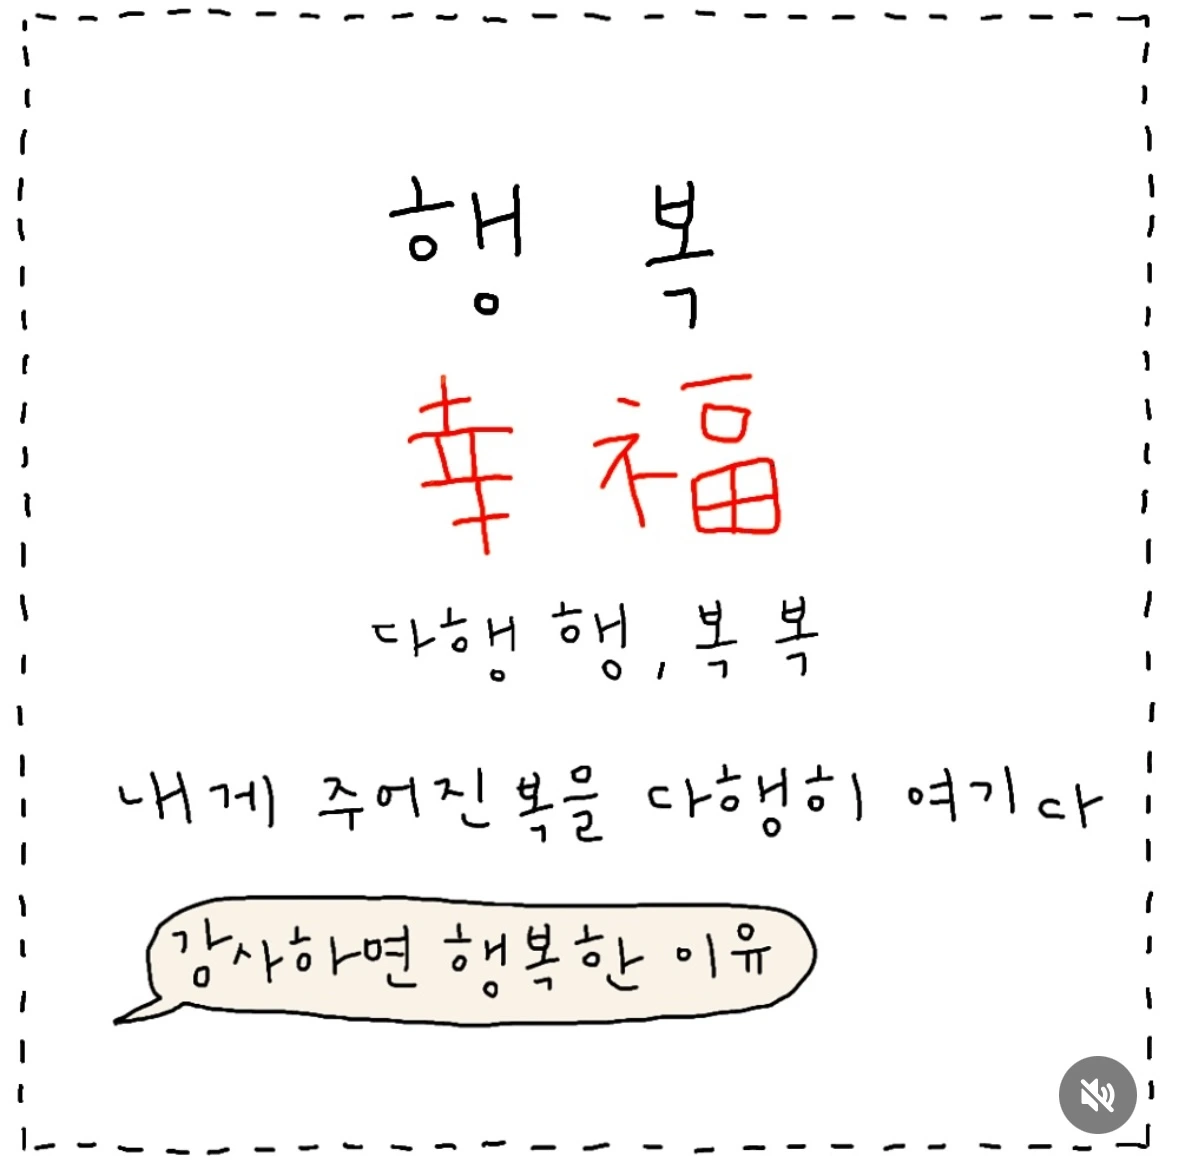 행 복
幸 福
다행 행, 복 복
내게 주어진 복을 다행히 여기다
강사하면 행복한 이유